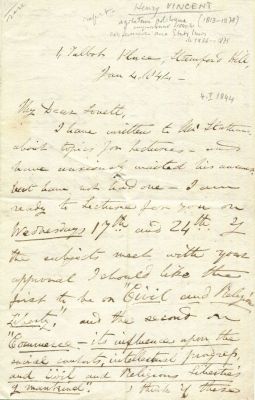 Henry VINCENT
agitateur politique (1813-1878)
4 Talbot Place, Stamford Hill,
Jan 4. 1844 -
4-I 1844
My Dear Lovett,
I have written to Mr Statham
about topics for lectures - and
have anxiously waited his answer
but have not had one - I am
ready to lecture for you on
Wednesdays 17th and 24th. If
the subjects meet with your
approval I should like the
first to be on "Civil and Religious
Liberty", and the second on
"Commerce - its influences upon the
social comforts, intellectual progress,
and Civil and Religious Liberties
of mankind". I think if these